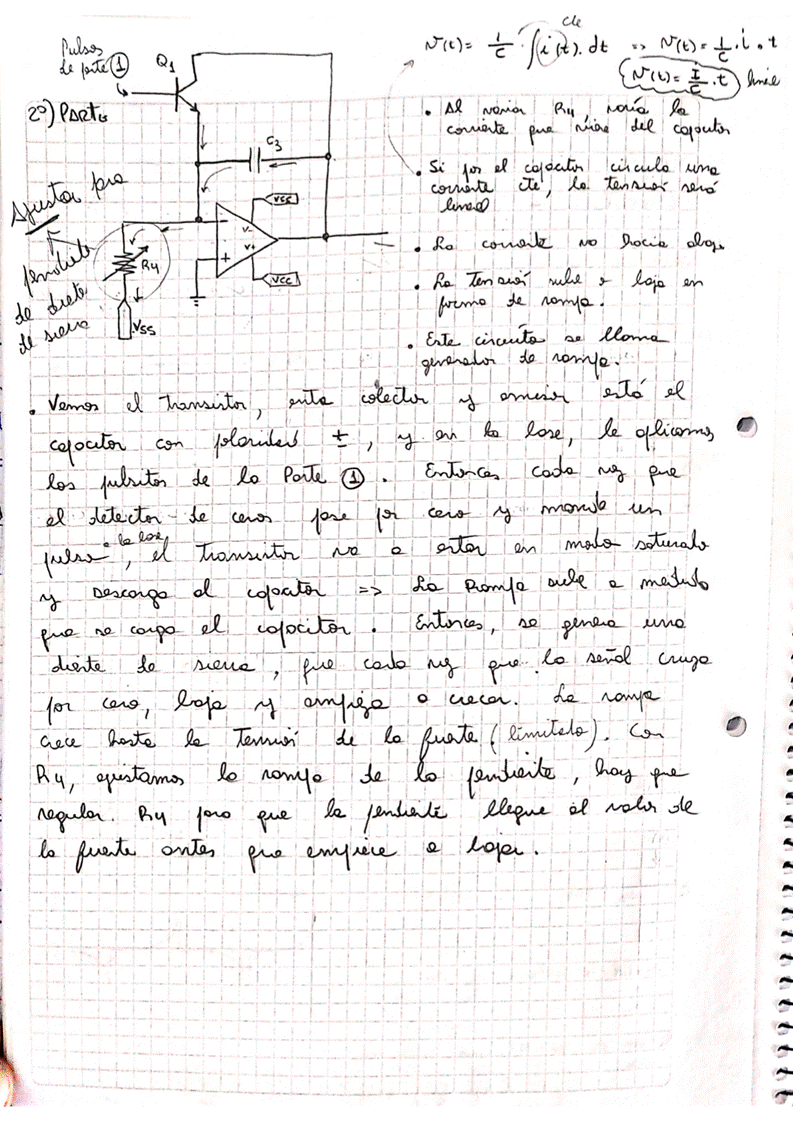 Pulsos
de parte ①
Q1
2º) Parte
C3
Ajustar pra
pendiente
de diente
de sierra
R4
VSS
VSS
V-
V+
VCC
-
+
cte
v(t) = 1/C · ∫ i(t). dt => v(t) = 1/C . i . t
v(t) = I/C . t
• Al variar R4, varía la
corriente que viene del capacitor
• Si por el capacitor circula una
corriente cte, la tensión será
lineal
• La corriente va hacia abajo
• La Tensión sube o baja en
forma de rampa.
• Este circuito se llama
generador de rampa.
• Vemos el transistor, entre colector y emisor está el
capacitor con polaridad ±, y en la base, le aplicamos
los pulsitos de la Parte ①. Entonces cada vez que
el detector de ceros pase por cero y mande un
pulso a la base, el transistor va a estar en modo saturado
y descarga al capacitor => La Rampa sube a medida
que se carga el capacitor. Entonces, se genera una
diente de sierra, que cada vez que la señal cruza
por cero, baja y empieza a crecer. La rampa
crece hasta la Tensión de la fuente (limitada). Con
R4, ajustamos la rampa de la pendiente, hay que
regular R4 para que la pendiente llegue al valor de
la fuente antes que empiece a bajar.